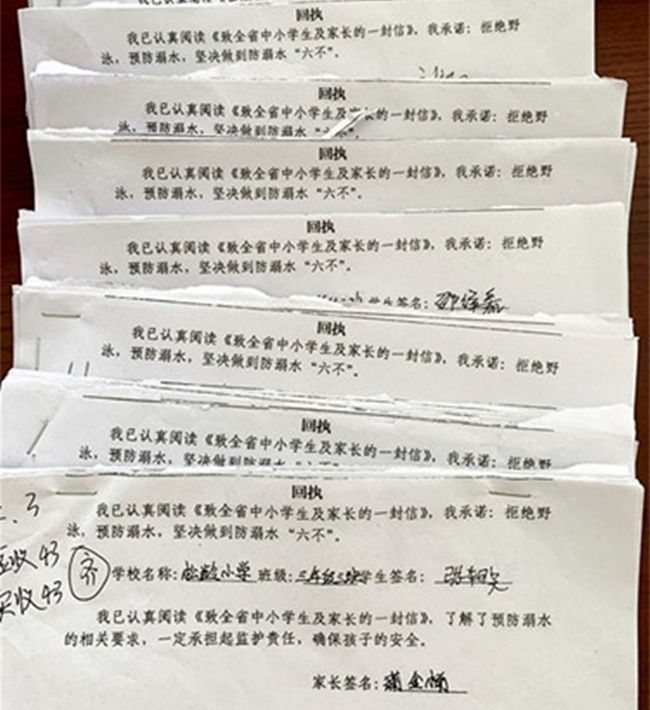 回执
我已认真阅读《致全省中小学生及家长的一封信》，我承诺：拒绝野
泳，预防溺水，坚决做到防溺水“六不”。
回执
我已认真阅读《致全省中小学生及家长的一封信》，我承诺：拒绝野
泳，预防溺水，坚决做到防溺水“六不”。
回执
我已认真阅读《致全省中小学生及家长的一封信》，我承诺：拒绝野
泳，预防溺水，坚决做到防溺水“六不”。
回执
我已认真阅读《致全省中小学生及家长的一封信》，我承诺：拒绝野
泳，预防溺水，坚决做到防溺水“六不”。
学生签名：
回执
我已认真阅读《致全省中小学生及家长的一封信》，我承诺：拒绝野
泳，预防溺水，坚决做到防溺水“六不”。
回执
我已认真阅读《致全省中小学生及家长的一封信》，我承诺：拒绝野
泳，预防溺水，坚决做到防溺水“六不”
回执
我已认真阅读《致全省中小学生及家长的一封信》，我承诺：拒绝野
泳，预防溺水，坚决做到防溺水“六不”。
收43 齐 学校名称：小学 班级：三年级三班 学生签名：
实收43
我已认真阅读《致全省中小学生及家长的一封信》，了解了预防溺水
的相关要求，一定承担起监护责任，确保孩子的安全。
家长签名：